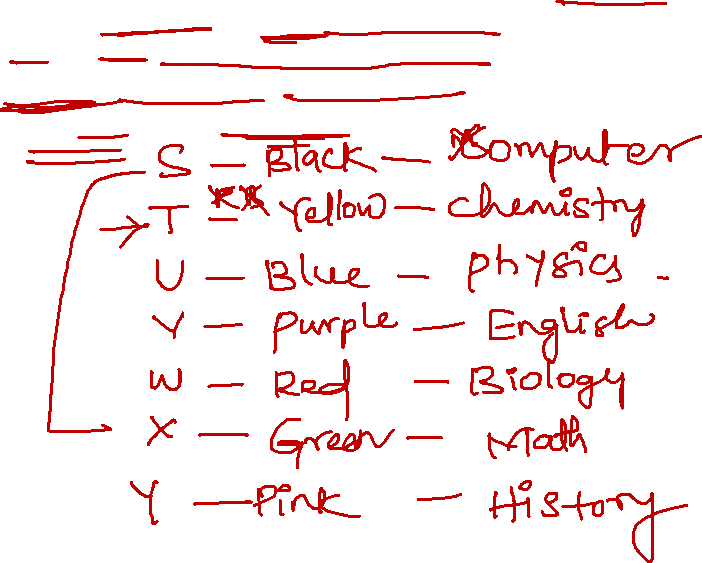 S - Black - Computer
T - Yellow - Chemistry
U - Blue - Physics.
V - Purple - English
W - Red - Biology
X - Green - Math
Y - Pink - History